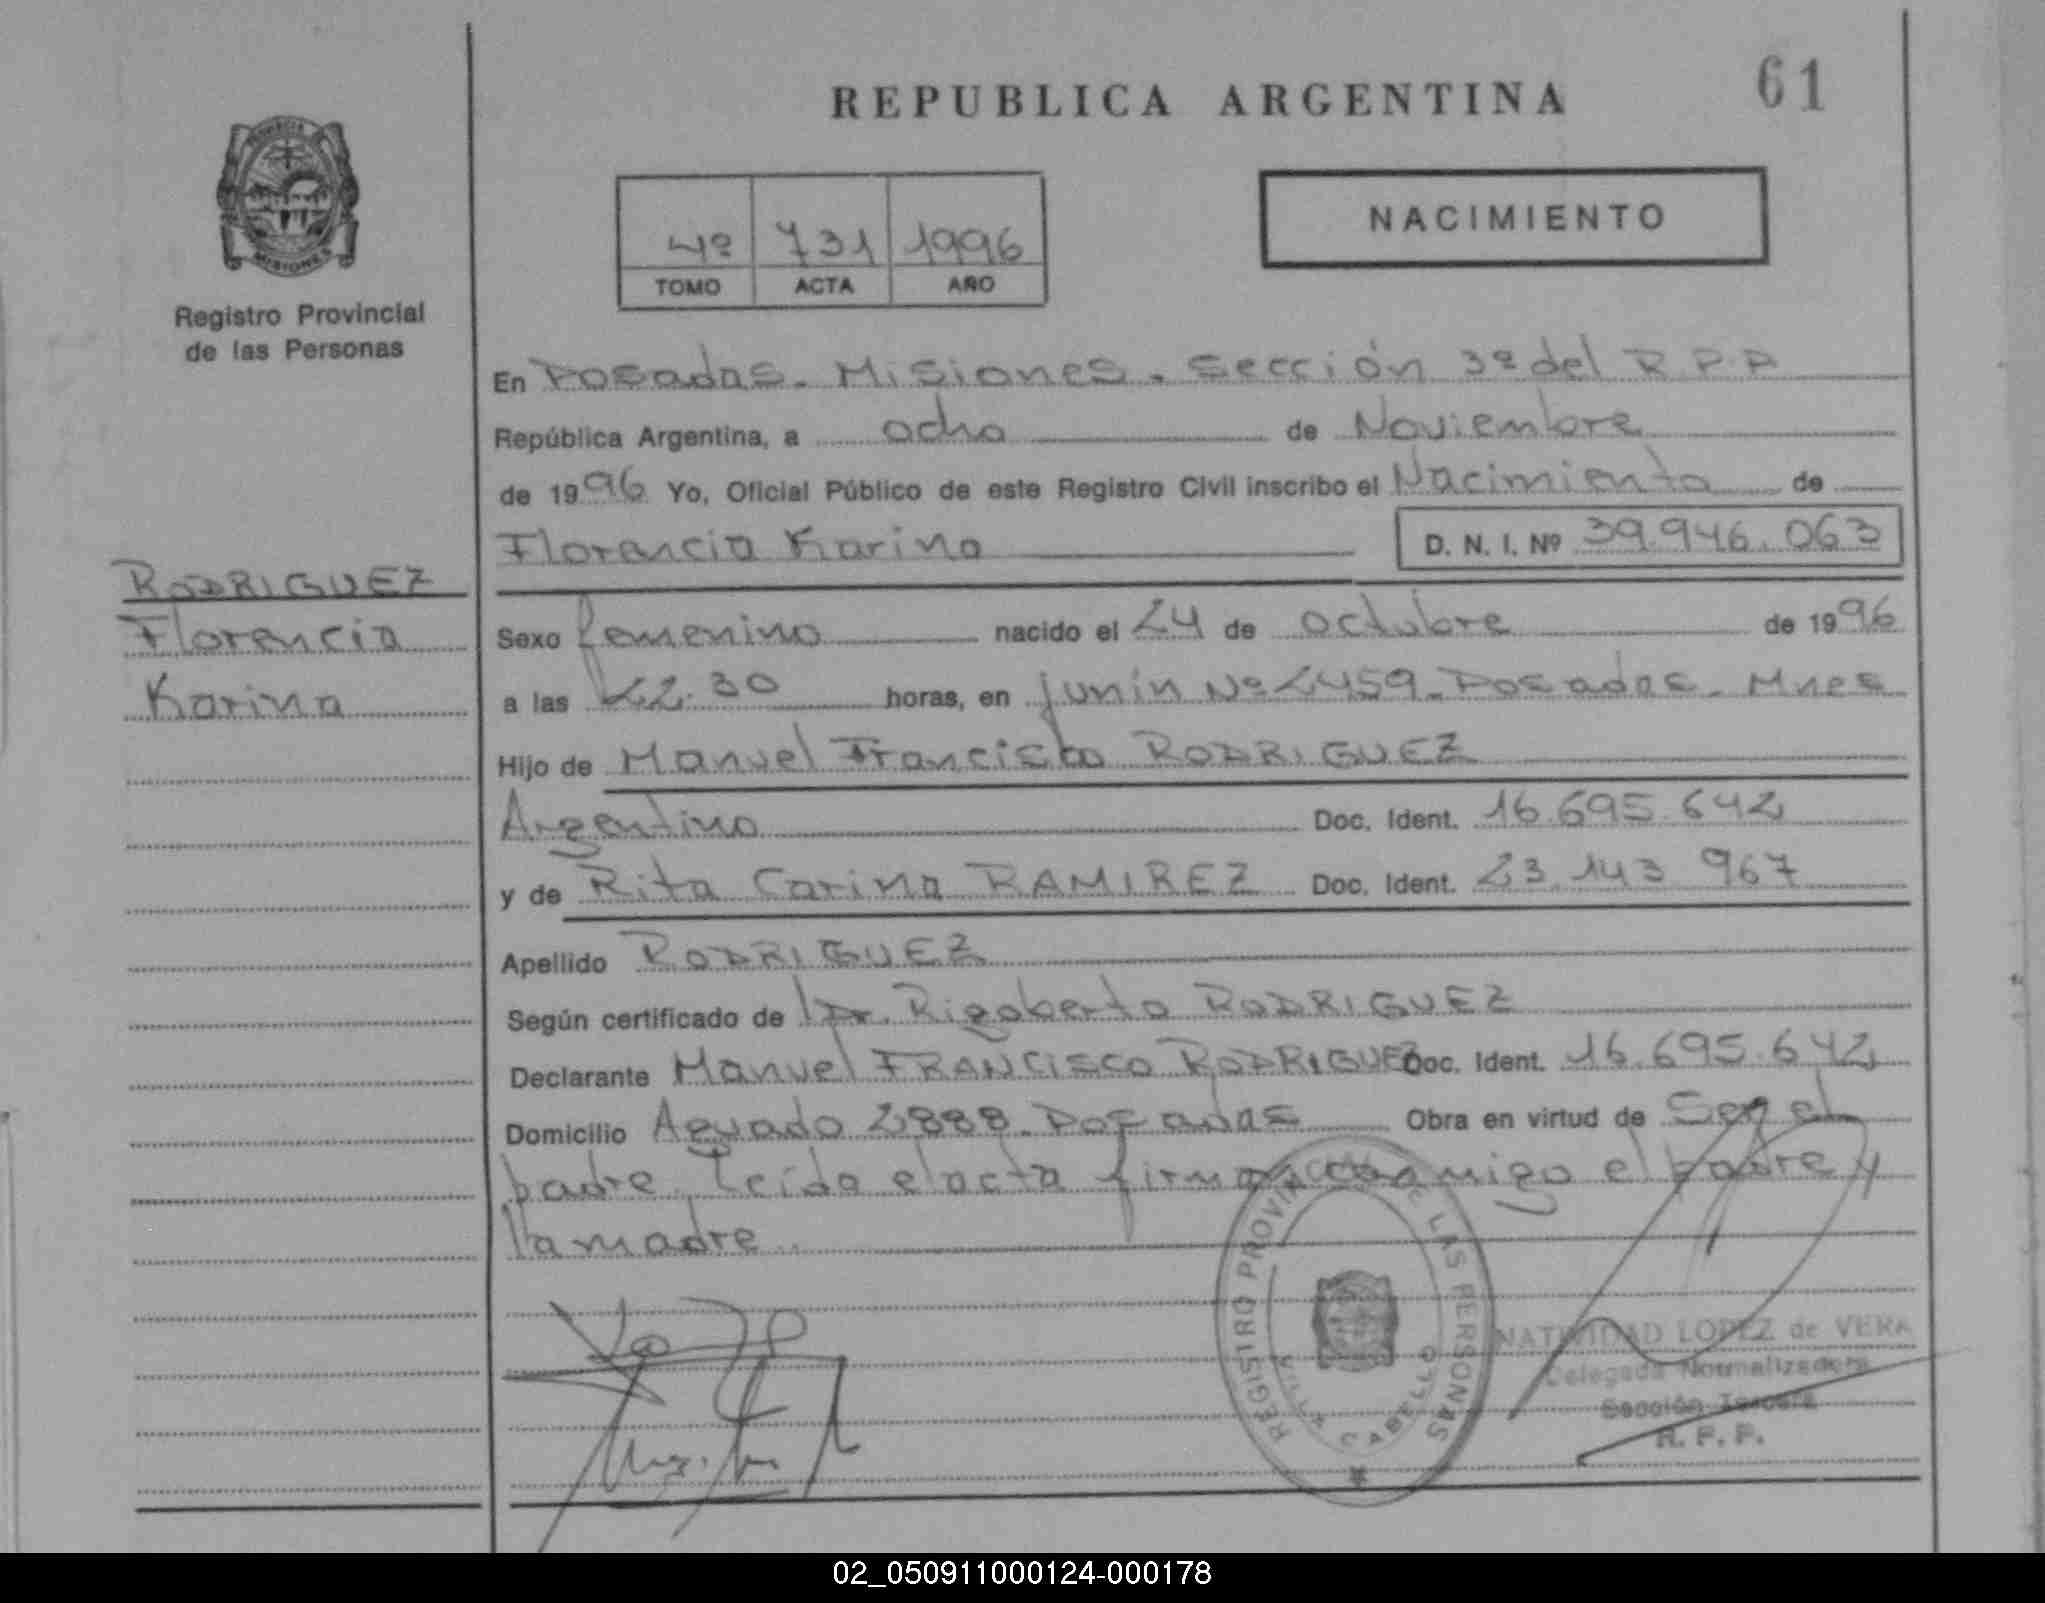 REPUBLICA ARGENTINA
61
NACIMIENTO
4º 731 1996
TOMO ACTA AÑO
MISIONES
Registro Provincial
de las Personas
En Posadas - Misiones - Sección 3ª del R.P.P
República Argentina, a ocho de Noviembre
de 1996 Yo, Oficial Público de este Registro Civil inscribo el Nacimiento de
Florencia Karina D. N. I. Nº 39.946.063
RODRIGUEZ
Florencia
Karina
Sexo femenino nacido el 24 de octubre de 1996
a las 22.30 horas, en Junín Nº 2459 - Posadas - Mnes
Hijo de Manuel Francisco RODRIGUEZ
Argentino Doc. Ident. 16.695.642
y de Rita Carina RAMIREZ Doc. Ident. 23.143.967
Apellido RODRIGUEZ
Según certificado de Dr. Rigoberto RODRIGUEZ
Declarante Manuel FRANCISCO RODRIGUEZ Doc. Ident. 16.695.642
Domicilio Aguado 2888 - Posadas Obra en virtud de Ser el
padre. Leída el acta firman conmigo el padre y
la madre.
REGISTRO PROVINCIAL DE LAS PERSONAS
VILLA CABELLO
NATIVIDAD LOPEZ de VERA
Delegada Normalizadora
Sección Tercera
R. P. P.
02_050911000124-000178